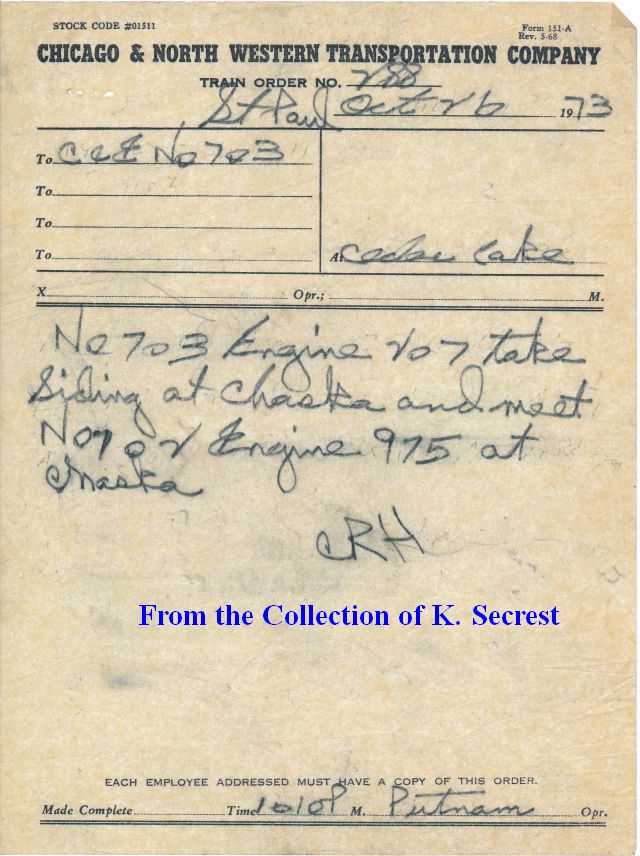 STOCK CODE #01511
Form 151-A
Rev. 5-68
CHICAGO & NORTH WESTERN TRANSPORTATION COMPANY
TRAIN ORDER NO. 288
St Paul Oct 26 1973
To C&E No 703
To
To
To
At Cedar Lake
X Opr.; M.
No 703 Engine 207 take
Siding at Chaska and meet
No 702 Engine 975 at
Chaska
CRH
From the Collection of K. Secrest
EACH EMPLOYEE ADDRESSED MUST HAVE A COPY OF THIS ORDER.
Made Complete Time 1010P M. Putnam Opr.